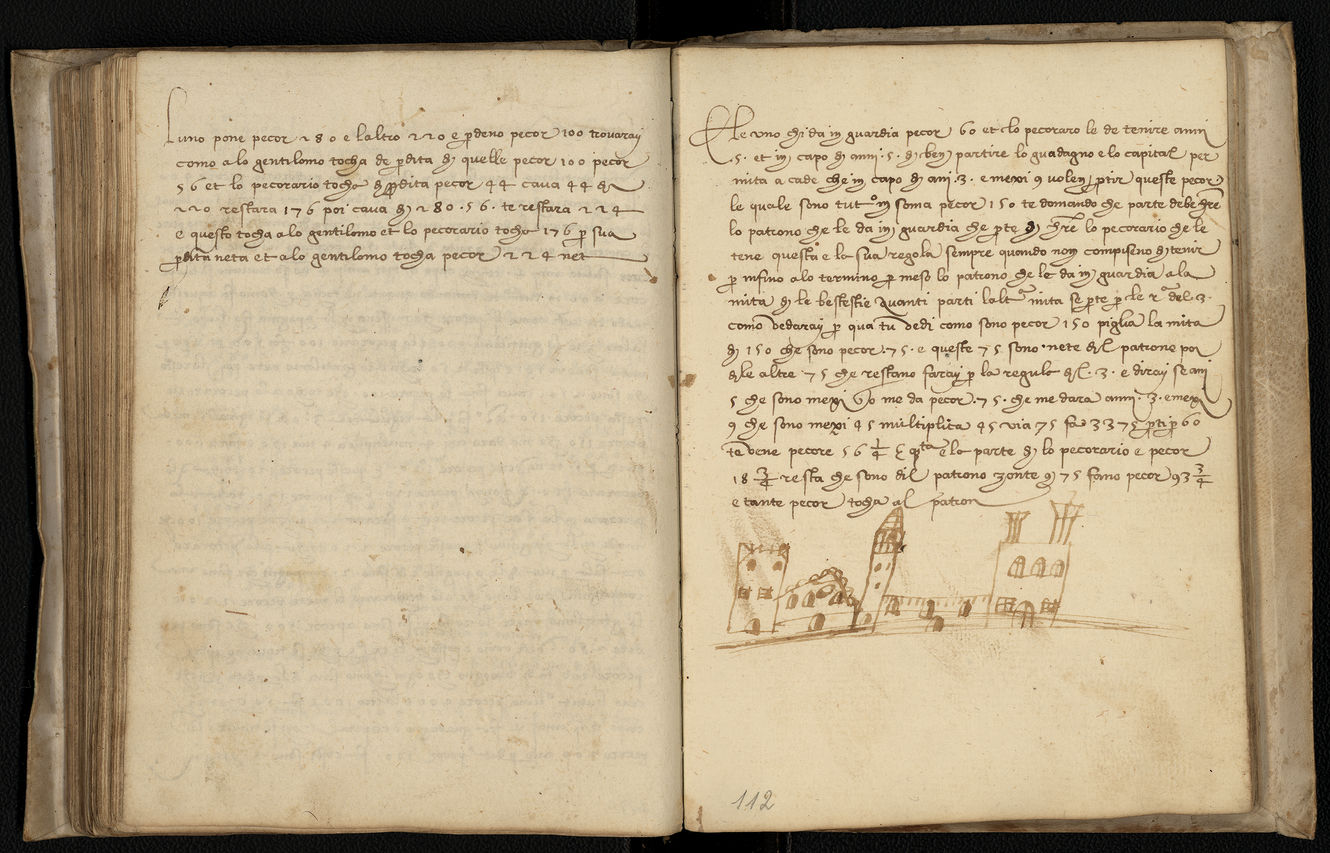 Luno pone pecor 280 e laltro 220 e pdeno pecor 100 trovaray
como alo gentilomo tocha de pdita di quelle pecor 100 pecor
56 et lo pecorario tocha pdita pecor 44 cava 44 di
220 restara 176 poi cava di 280 . 56 . te restara 224
e questo tocha alo gentilomo et lo pecorario tocha 176 p sua
pdita neta et alo gentilomo tocha pecor 224 net
Ele uno chi da in guardia pecor 60 et lo pecoraro le de tenire anni
.5. et in capo di anni .5. partire lo guadagno e lo capital per
mita acade che in capo di ani .3. e mexi 9 volen ptir queste pecor
le quale sono tut in soma pecor 150 te domando che parte debe
lo patrono che le da in guardia che pte lo pecorario che le
tene questa e la sua regola sempre quando non compiseno di tenir
p infino alo termino p meso lo patrono che le da in guardia a la
mita di le bestestie quanti parti mita se pte p le del .3.
como vedaray p qua tu vedi como sono pecor 150 piglia la mita
di 150 che sono pecor .75. e queste 75 sono nete del patrone poi
dele altre .75 che restano faray p la regula del .3. e diray se ani
5 che sono mexi 60 me da pecor .75. che me dara anni .3. e mexi
9 che sono mexi 45 multiplica 45 via 75 fa 3375 pti p 60
te vene pecore 56 1/4 e lo parte di lo pecorario e pecor
18 3/4 resta che sono dil patrono zonte 75 fano pecor 93 3/4
e tante pecor tocha al patron
112